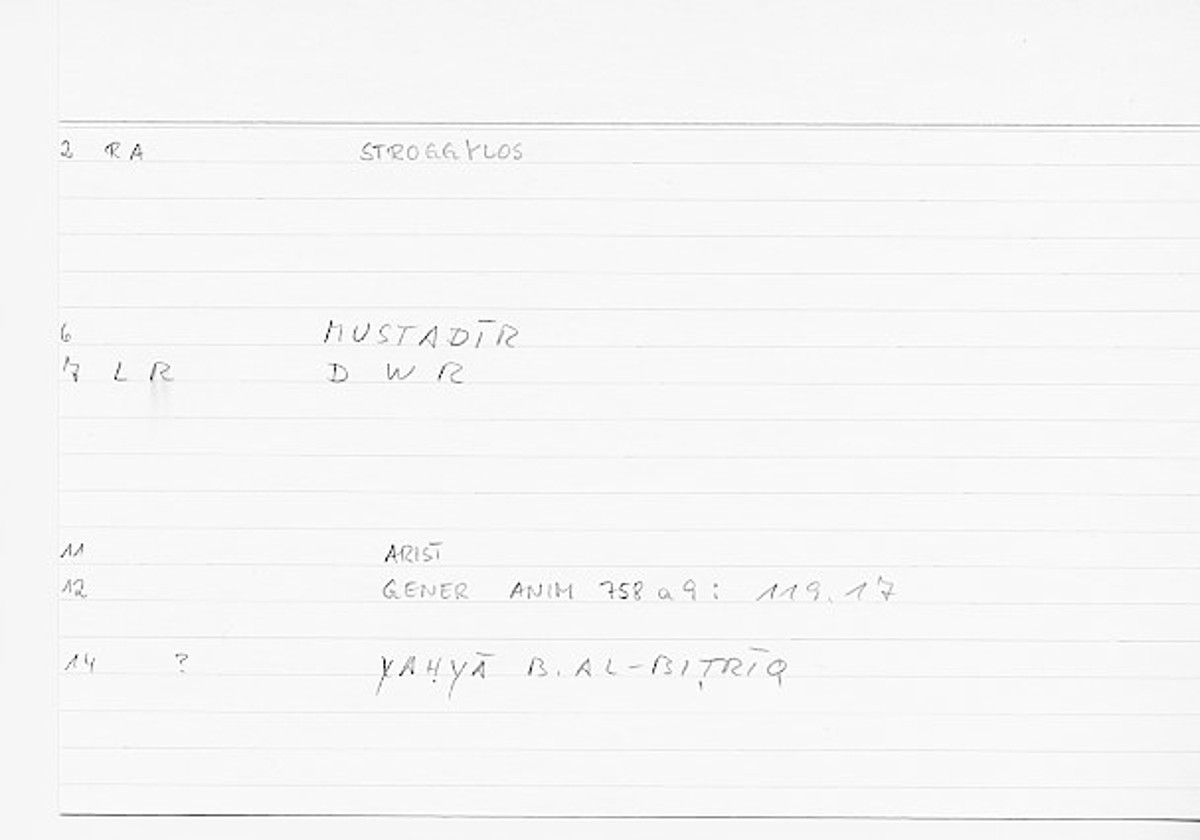 2 RA STROGGYLOS
6 MUSTADĪR
7 LR D W R
11 ARIST
12 GENER ANIM 758a9: 119.17
14 ? YAḤYĀ B. AL-BIṬRĪQ